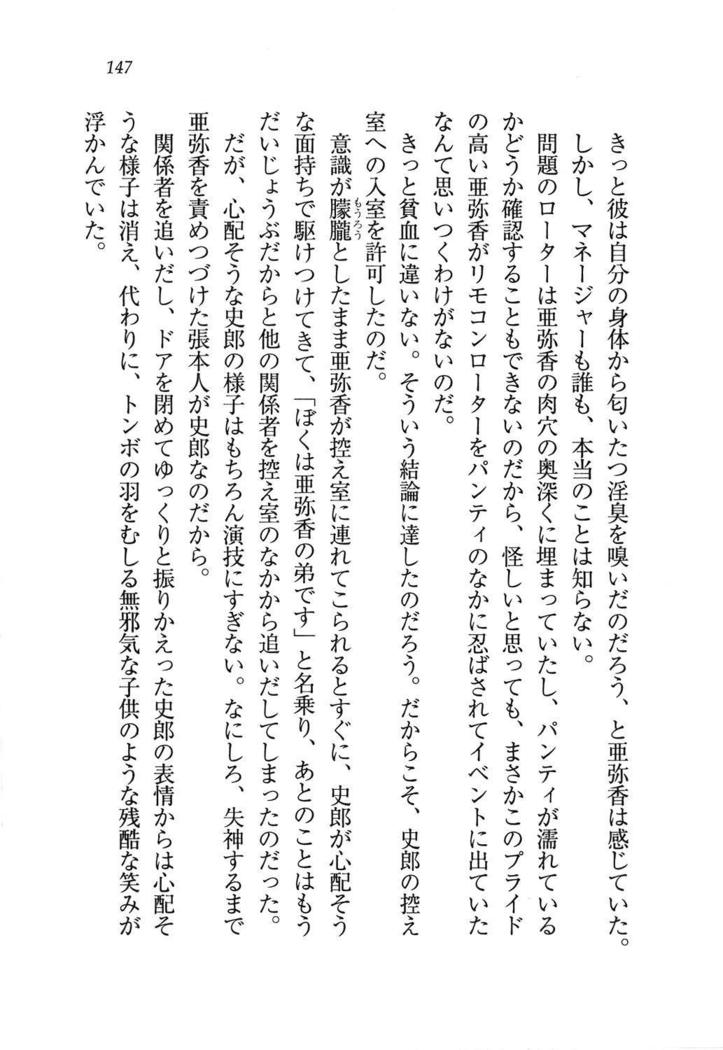 147
きっと彼は自分の身体から匂いたつ淫臭を嗅いだのだろう、と亜弥香は感じていた。
しかし、マネージャーも誰も、本当のことは知らない。
問題のローターは亜弥香の肉穴の奥深くに埋まっていたし、パンティが濡れている
かどうか確認することもできないのだから、怪しいと思っても、まさかこのプライド
の高い亜弥香がリモコンローターをパンティのなかに忍ばされてイベントに出ていた
なんて思いつくわけがないのだ。
きっと貧血に違いない。そういう結論に達したのだろう。だからこそ、史郎の控え
室への入室を許可したのだ。
意識が朦朧としたまま亜弥香が控え室に連れてこられるとすぐに、史郎が心配そう
もうろう
な面持ちで駆けつけてきて、「ぼくは亜弥香の弟です」と名乗り、あとのことはもう
だいじょうぶだからと他の関係者を控え室のなかから追いだしてしまったのだった。
だが、心配そうな史郎の様子はもちろん演技にすぎない。なにしろ、失神するまで
亜弥香を責めつづけた張本人が史郎なのだから。
関係者を追いだし、ドアを閉めてゆっくりと振りかえった史郎の表情からは心配そ
うな様子は消え、代わりに、トンボの羽をむしる無邪気な子供のような残酷な笑みが
浮かんでいた。